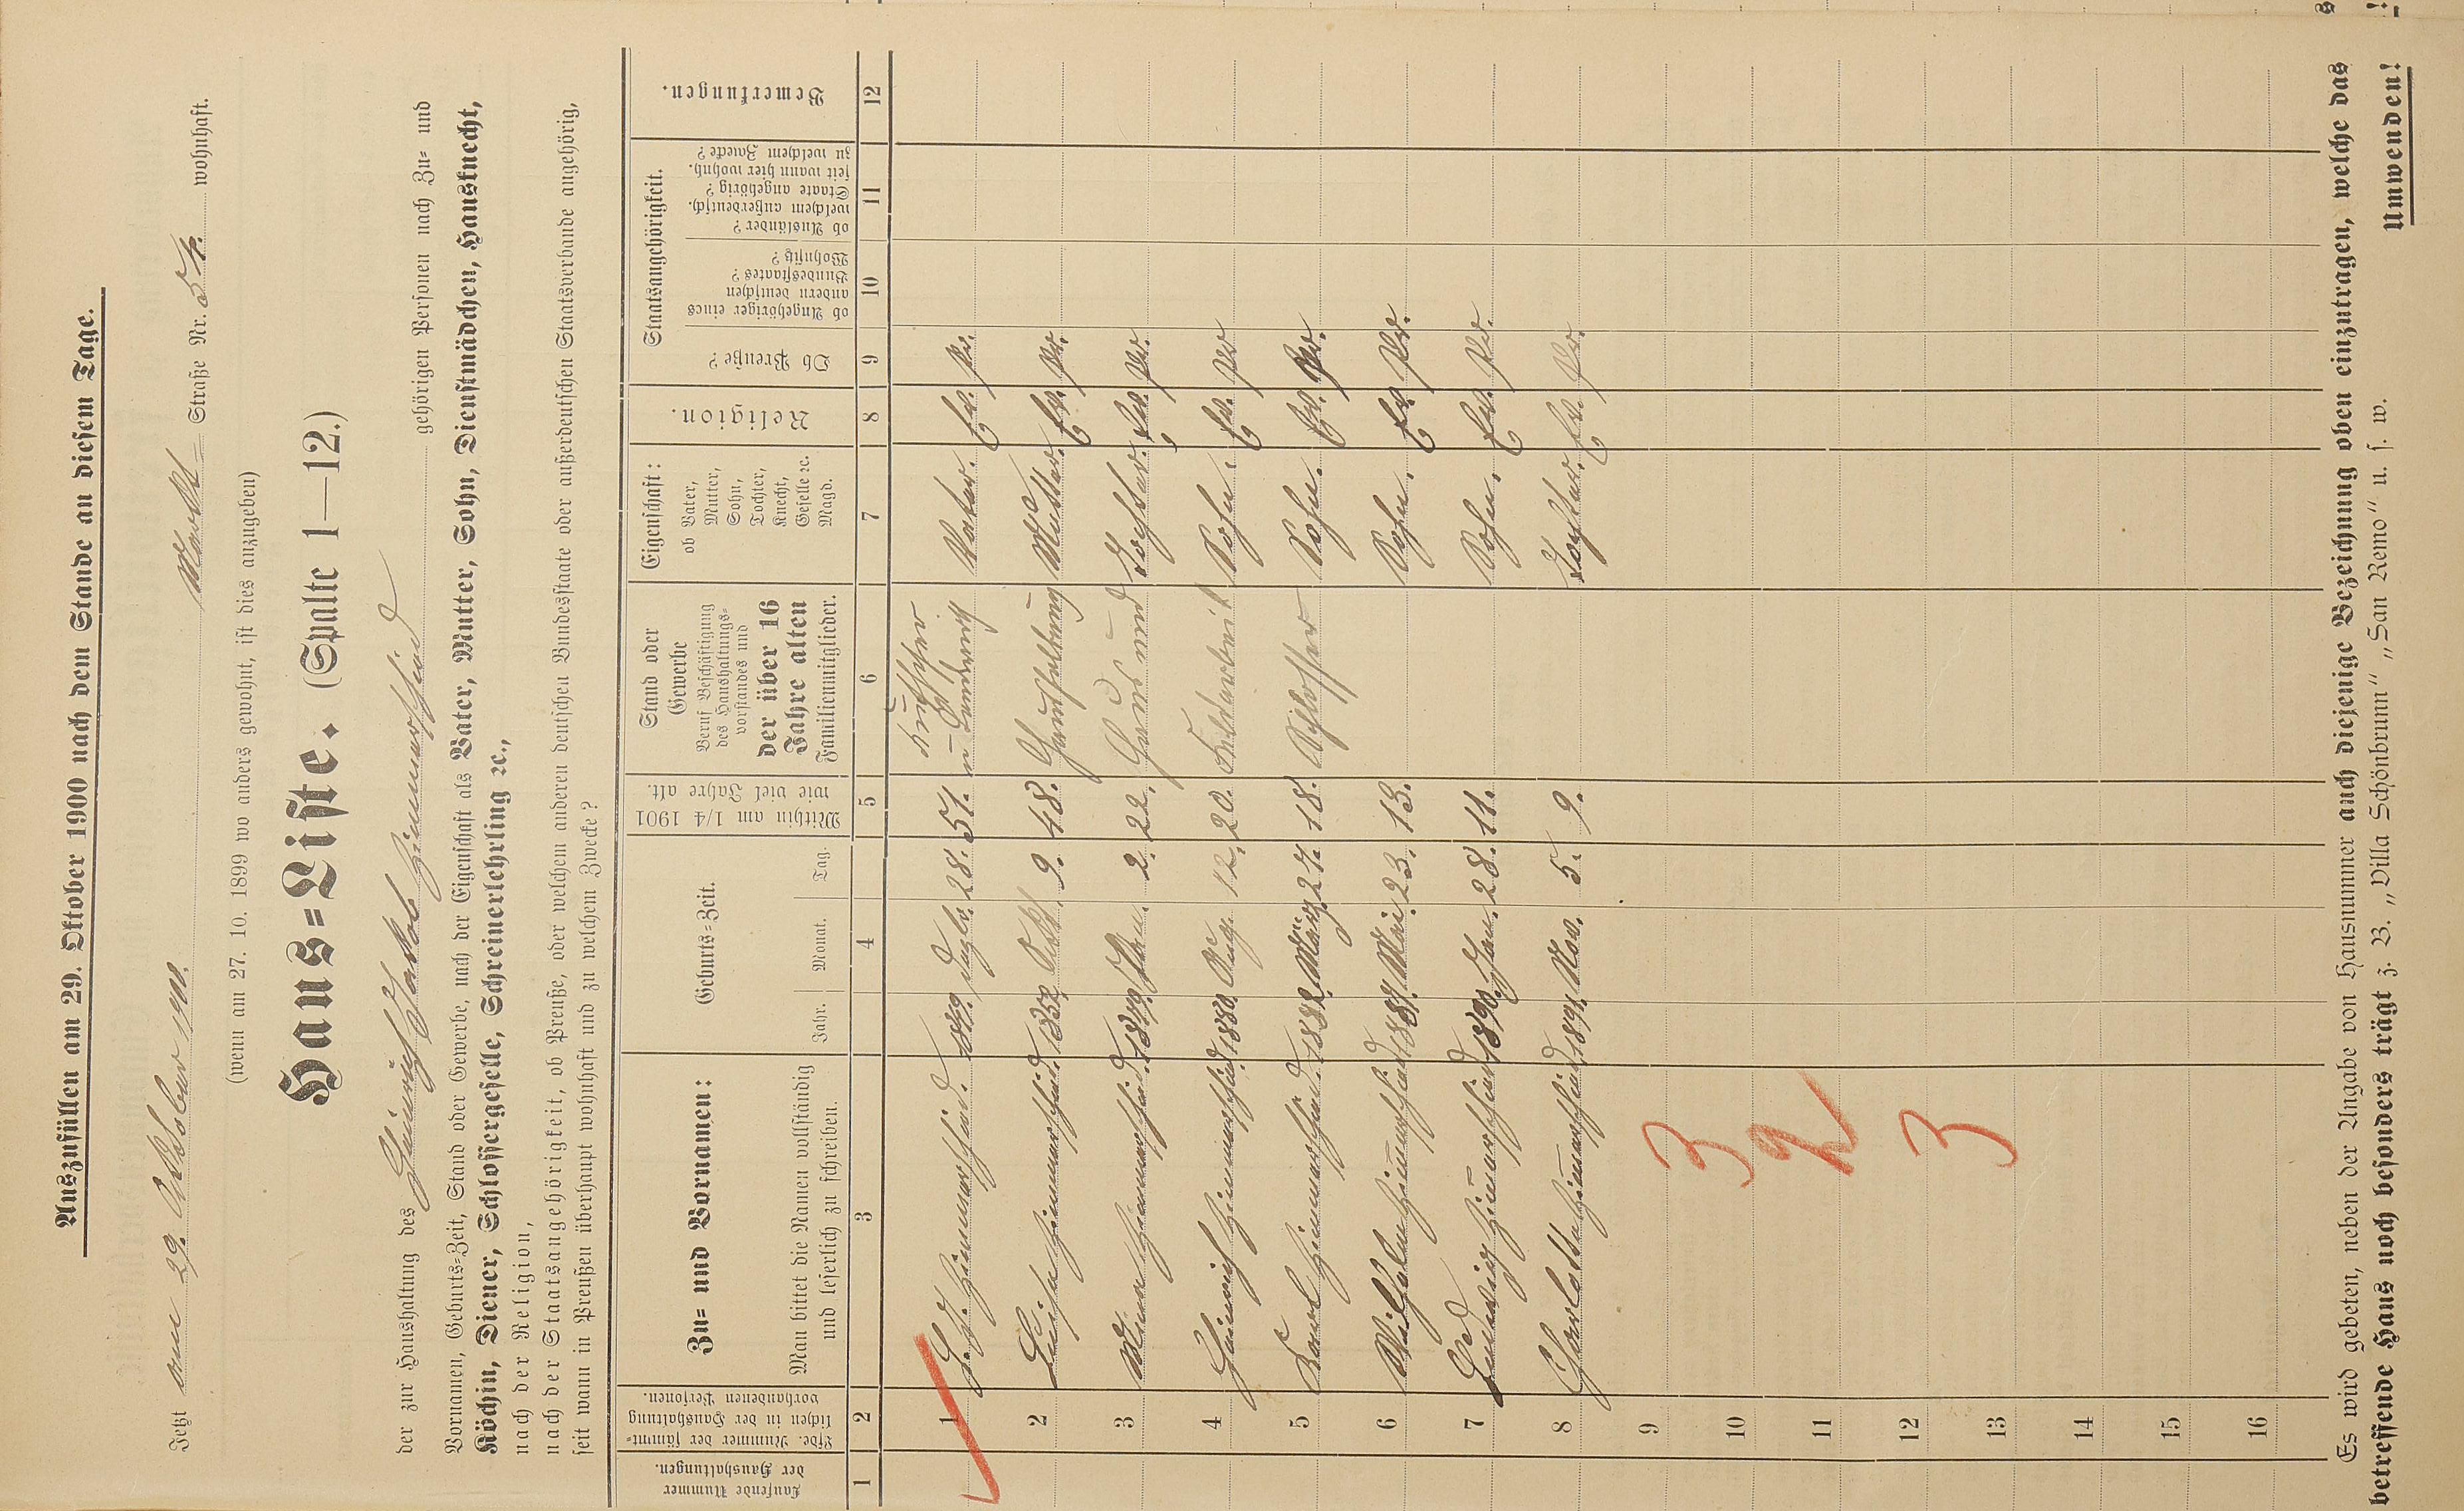 Auszufüllen am 29. Oktober 1900 nach dem Stande an diesem Tage.
Jetzt am 29. Oktober 1900. Markt= Straße Nr. 54. wohnhaft.
(wenn am 27. 10. 1899 wo anders gewohnt, ist dies anzugeben)
Haus=Liste. (Spalte 1—12.)
der zur Haushaltung des Heinrich Jakob gehörigen Personen nach Zu= und
Vornamen, Geburts=Zeit, Stand oder Gewerbe, nach der Eigenschaft als Vater, Mutter, Sohn, Dienstmädchen, Hausknecht,
Köchin, Diener, Schlossergeselle, Schreinerlehrling ꝛc.,
nach der Religion,
nach der Staatsangehörigkeit, ob Preuße, oder welchem anderen deutschen Bundesstaate oder außerdeutschen Staatsverbande angehörig,
seit wann in Preußen überhaupt wohnhaft und zu welchem Zwecke?
Laufende Nummer der Haushaltungen.
Lfde. Nummer der sämmtlichen in der Haushaltung vorhandenen Personen.
Zu= und Vornamen:
Man bittet die Namen vollständig
und leserlich zu schreiben.
Geburts=Zeit.
Jahr. Monat. Tag.
Mithin am 1/4 1901 wie viel Jahre alt.
Stand oder
Gewerbe
Beruf Beschäftigung
des Haushaltungs=
vorstandes und
der über 16
Jahre alten
Familienmitglieder.
Eigenschaft:
ob Vater,
Mutter,
Sohn,
Tochter,
Knecht,
Geselle ꝛc.
Magd.
Religion.
Staatsangehörigkeit.
Ob Preuße?
ob Angehöriger eines
andern deutschen
Bundesstaates?
Wohnsitz?
ob Ausländer?
welchem außerdeutsch.
Staate angehörig?
seit wann hier wohnh.
zu welchem Zwecke?
Bemerkungen.
1 2 3 4 5 6 7 8 9 10 11 12
1 1849. 28. 51. Vater. Ev. Pr.
2 Luise 1852. Okt. 9. 48. Mutter. Ev. Pr.
3 Mina 1879. 2. 22. Tochter. Ev. Pr.
4 Heinrich 1880. Aug. 12. 20. Sohn. Ev. Pr
5 Karl 1882. März 27. 18. Schlosser Sohn. Ev. Pr.
6 Wilhelm 1887. Mai. 23. 13. Sohn. Ev. Pr.
7 Ludwig 1890. Jan. 28. 11. Sohn. Ev. Pr.
8 1891. Nov. 5. 9. Tochter. Ev. Pr.
9
10
11
12
13
14
15
16
3
3
Es wird gebeten, neben der Angabe von Hausnummer auch diejenige Bezeichnung oben einzutragen, welche das
betreffende Haus noch besonders trägt z. B. „Villa Schönbrunn“ „San Remo“ u. s. w.
Umwenden!